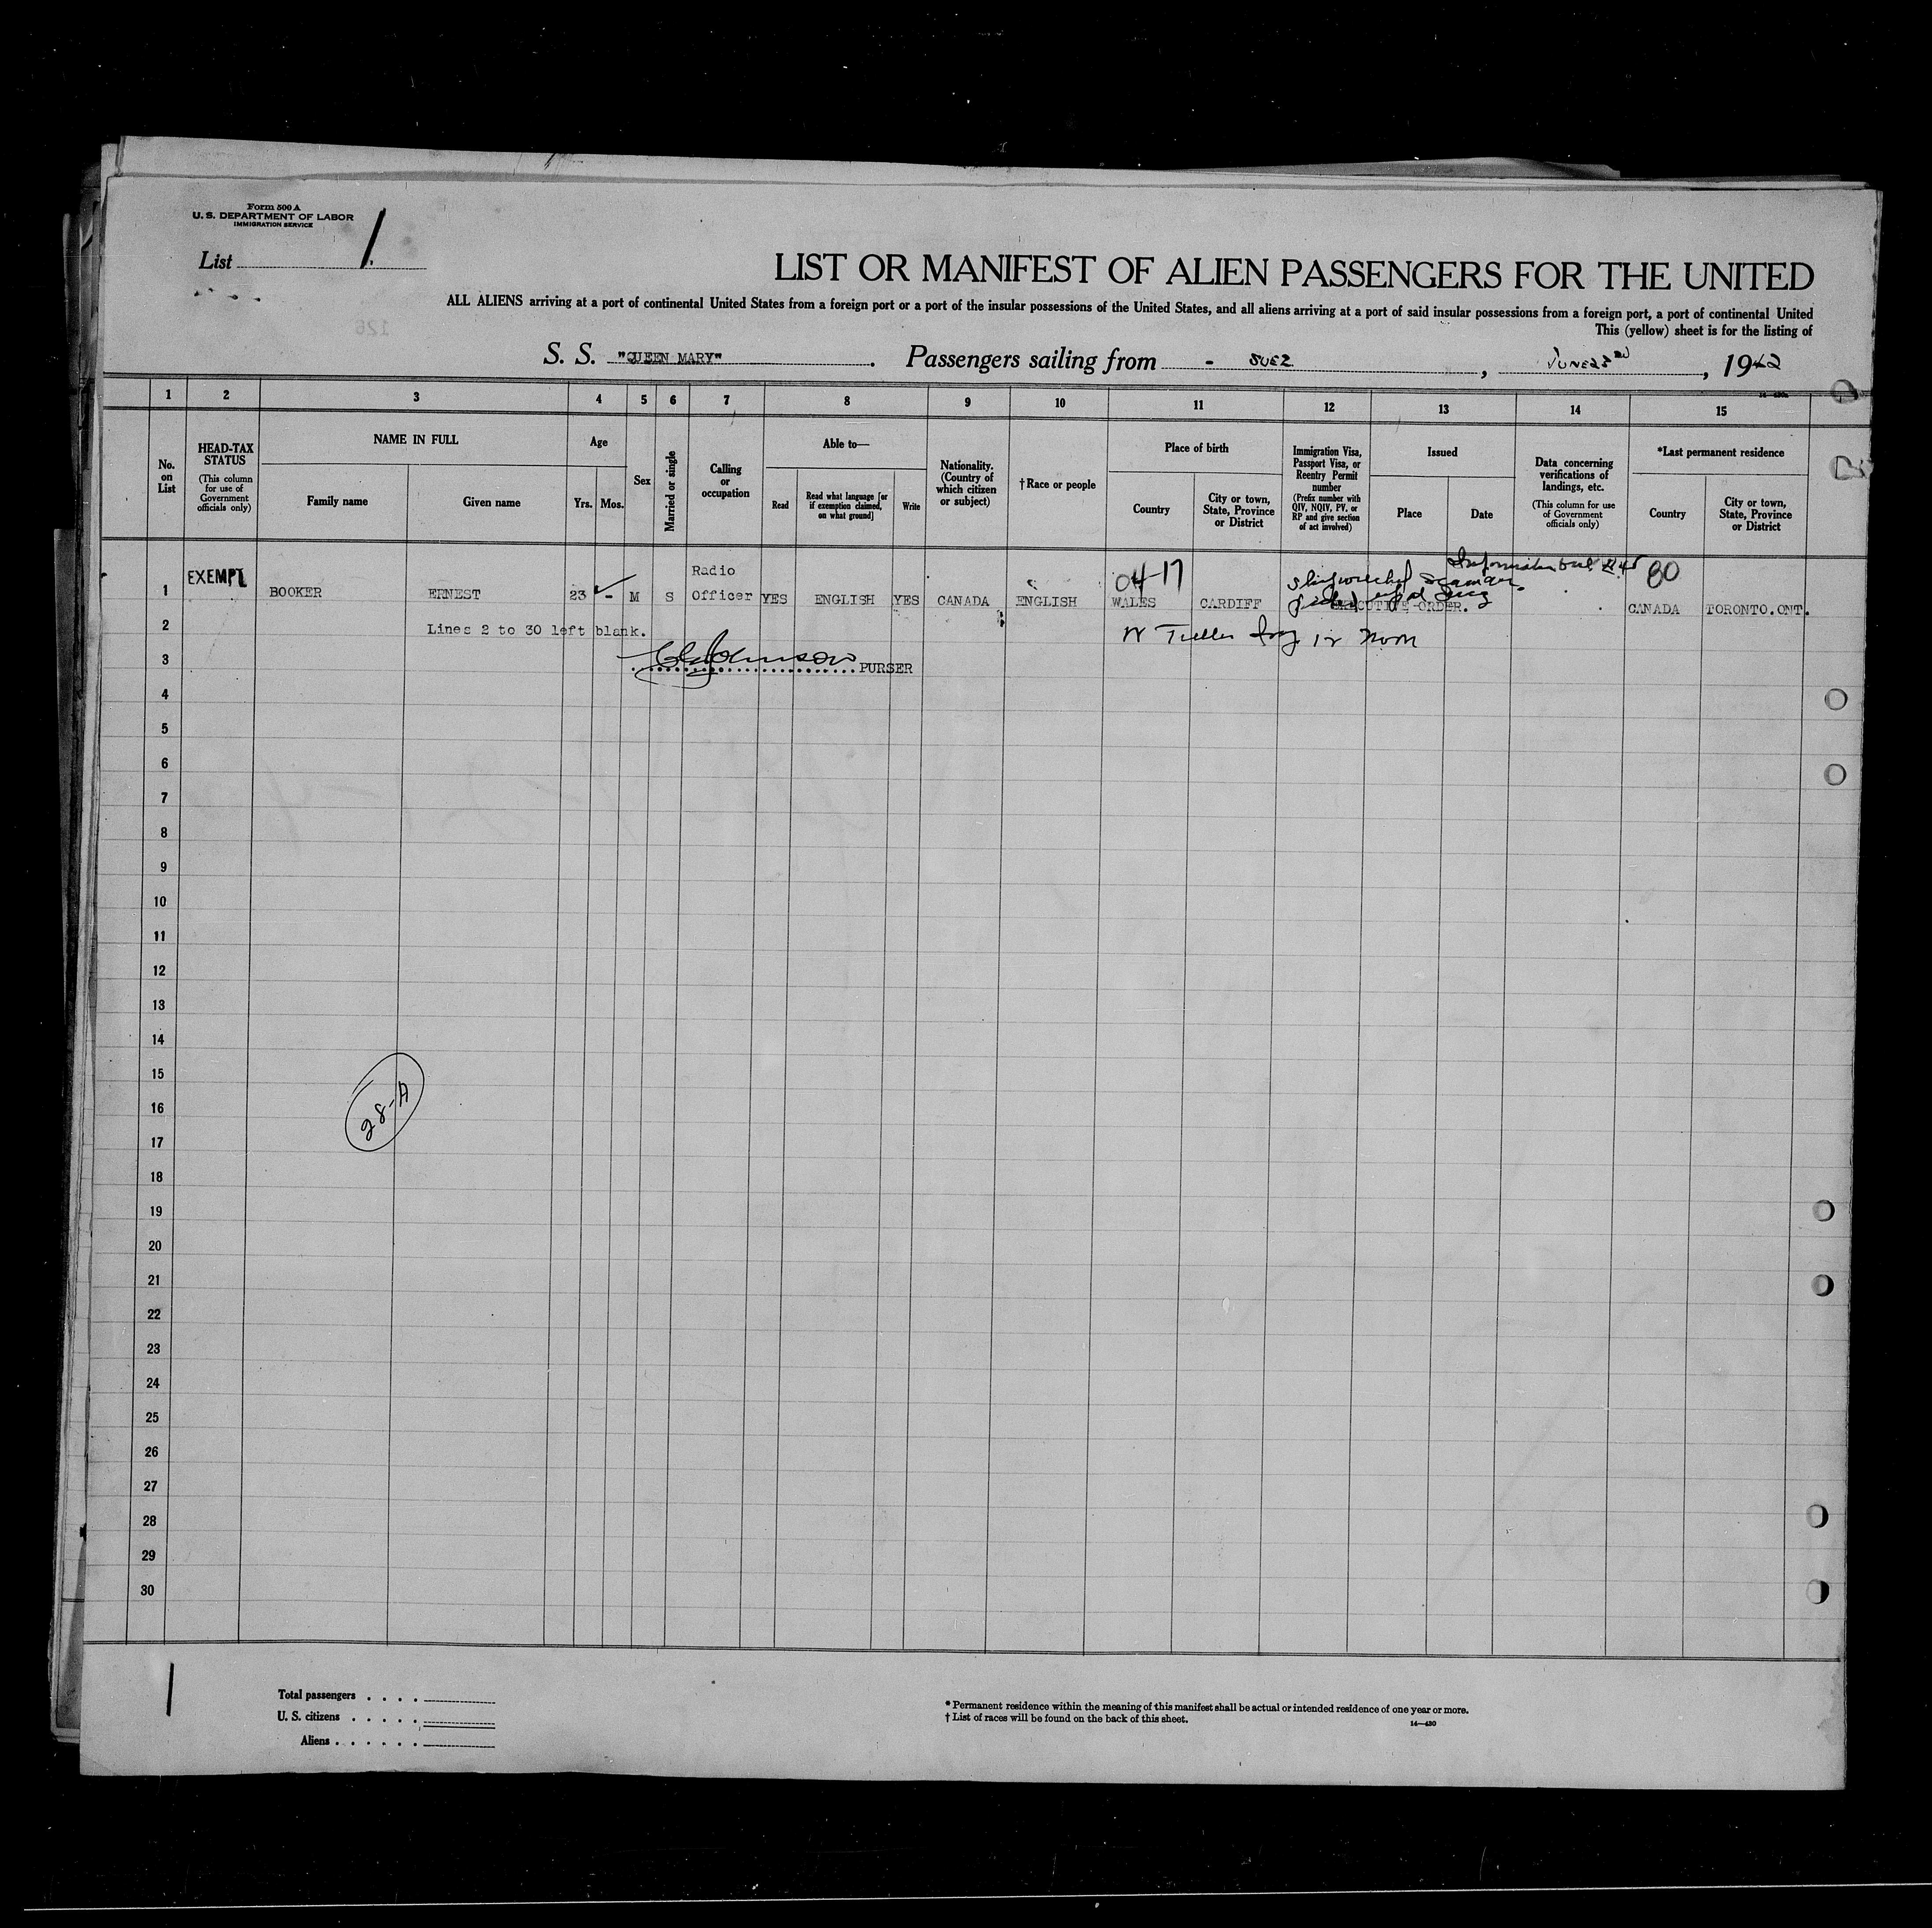 Form 500 A
U. S. DEPARTMENT OF LABOR
IMMIGRATION SERVICE
List 1
LIST OR MANIFEST OF ALIEN PASSENGERS FOR THE UNITED
ALL ALIENS arriving at a port of continental United States from a foreign port or a port of the insular possessions of the United States, and all aliens arriving at a port of said insular possessions from a foreign port, a port of continental United
This (yellow) sheet is for the listing of
126
S. S. "QUEEN MARY". Passengers sailing from - SUEZ, JUNE 23RD, 1942
1 2 3 4 5 6 7 8 9 10 11 12 13 14 15
No. on List
HEAD-TAX STATUS
(This column for use of Government officials only)
NAME IN FULL
Family name
Given name
Age
Yrs. Mos.
Sex
Married or single
Calling or occupation
Able to—
Read
Read what language [or if exemption claimed, on what ground]
Write
Nationality. (Country of which citizen or subject)
†Race or people
Place of birth
Country
City or town, State, Province or District
Immigration Visa, Passport Visa, or Reentry Permit number
(Prefix number with QIV, NQIV, PV, or RP and give section of act involved)
Issued
Place
Date
Data concerning verifications of landings, etc.
(This column for use of Government officials only)
*Last permanent residence
Country
City or town, State, Province or District
1 EXEMPT BOOKER ERNEST 23 - M S Radio Officer YES ENGLISH YES CANADA ENGLISH 04-17 WALES CARDIFF Shipwrecked seaman picked up at Suez EXECUTIVE ORDER. 80 CANADA TORONTO.ONT.
2 Lines 2 to 30 left blank.
3 Johnson PURSER
4
5
6
7
8
9
10
11
12
13
14
15
16
17
18
19
20
21
22
23
24
25
26
27
28
29
30
28-A
Total passengers
U. S. citizens
Aliens
* Permanent residence within the meaning of this manifest shall be actual or intended residence of one year or more.
† List of races will be found on the back of this sheet.
14—430